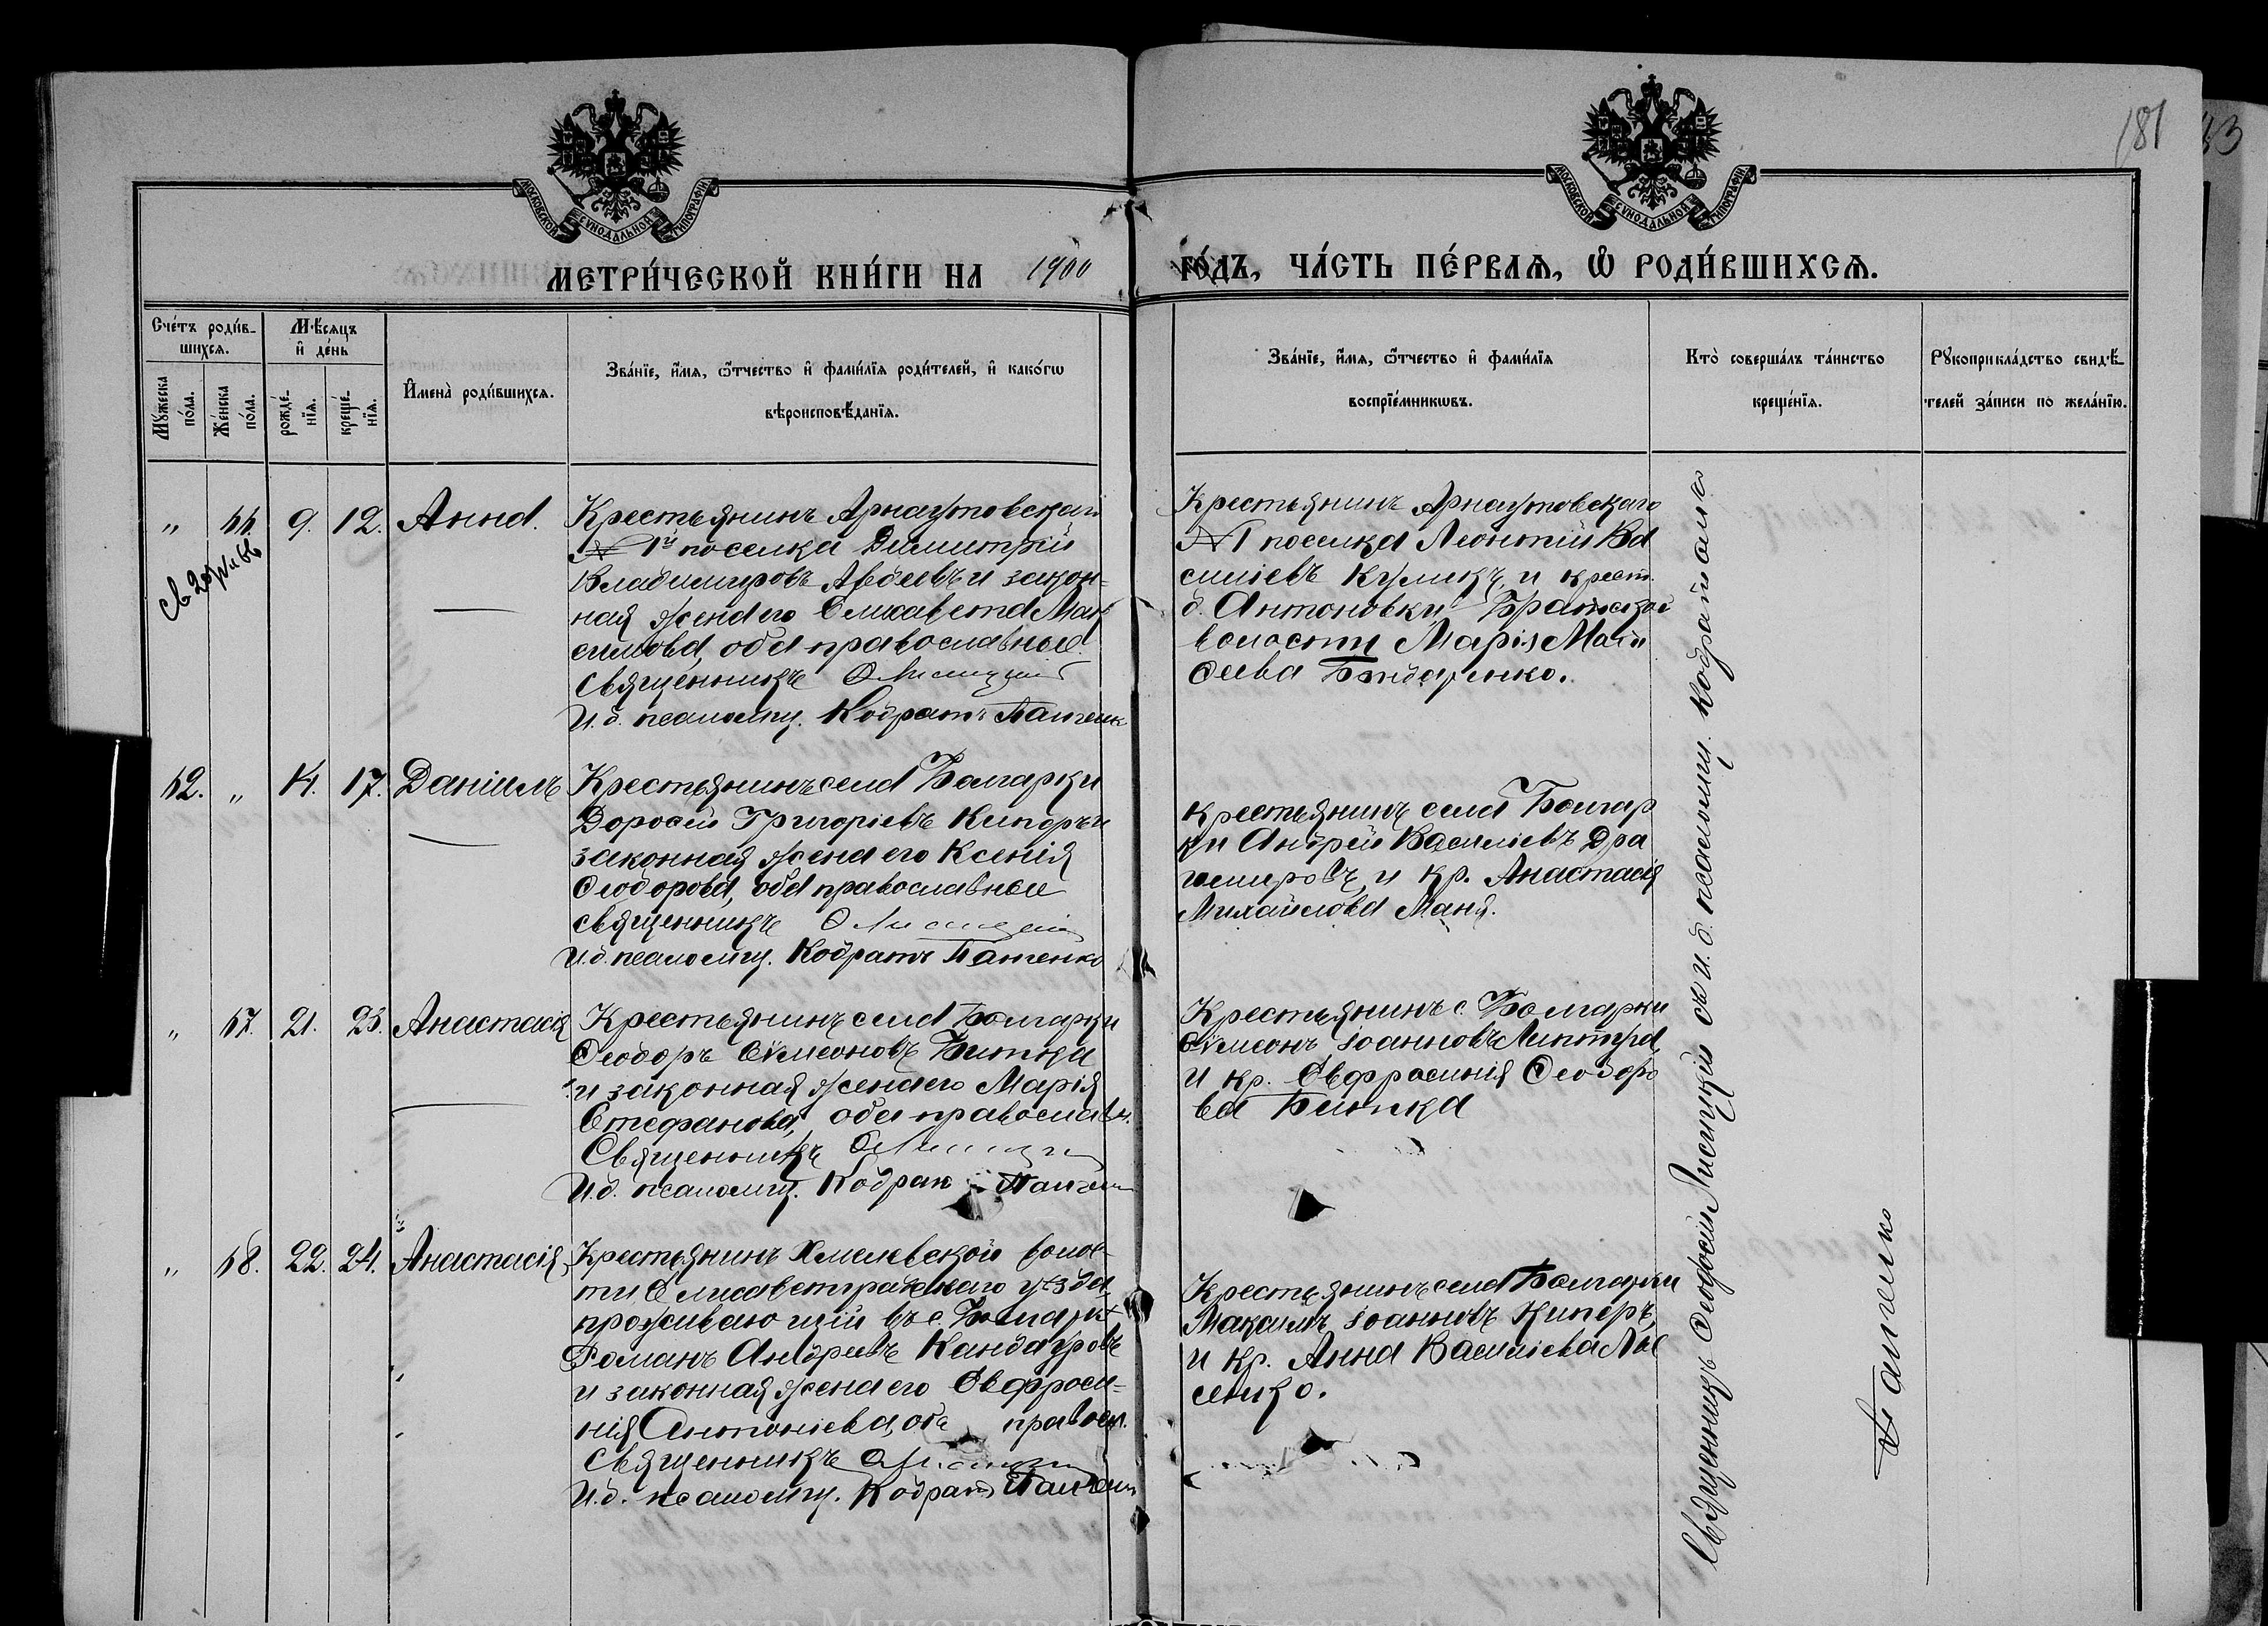 181
МОСКОВСКОЙ СУНОДАЛЬНОЙ ТИПОГРАФІИ
МОСКОВСКОЙ СУНОДАЛЬНОЙ ТИПОГРАФІИ
МЕТРИ́ЧЕСКОЙ КНИ́ГИ НА 1900 ГО́ДЪ, ЧА́СТЬ ПЕ́РВАѦ, Ѡ҆ РОДИ́ВШИХСѦ.
Сче́тъ роди́в-
шихсѧ.
Мꙋ́жеска
по́ла.
Же́нска
по́ла.
Мѣ́сѧцъ
и҆ де́нь
рожде́-
нїѧ.
креще́-
нїѧ.
И҆мена̀ роди́вшихсѧ.
Зва́нїе, и҆́мѧ, ѻ҆́тчество и҆ фами́лїѧ роди́телей, и҆ како́гѡ
вѣроисповѣ́данїѧ.
Зва́нїе, и҆́мѧ, ѻ҆́тчество и҆ фами́лїѧ
воспрїе́мникѡвъ.
Кто̀ соверша́лъ та́инство
креще́нїѧ.
Рꙋкоприкла́дство свидѣ́-
телей за́писи по жела́нїю.
„ 9. 12. Анна.
Крестьянинъ Арнаутовскаго
№ 1й поселка Димитрій
Владимировъ Авдеевъ и закон-
ная жена его Елисавета Мак
симова, оба православные
Священникъ Ѳ Лисицкій
И.д. псаломщ. Кодратъ Панченк
Крестьянинъ Арнаутовскаго
№ 1 поселка Леонтій Ва
силіевъ Куликъ, и крест.
д. Антоновки Братской
волости Марія Мат
ѳеева Бондаренко.
52. „ 14. 17. Даніилъ
Крестьянинъ села Болгарки
Дороѳей Григоріевъ Кипоръ и
законная жена его Ксенія
Ѳеодорова, оба православные
Священникъ Ѳ Лисицкій
И.д. псаломщ. Кодратъ Панченко
крестьянинъ села Болгар
ки Андрей Василіевъ Дра
гомировъ, и кр. Анастасія
Михайлова Маня.
„ 57. 21. 23. Анастасія
Крестьянинъ села Болгарки
Ѳеодоръ Сѵмеоновъ
и законная жена его Марія
Стефанова, оба православн.
Священникъ Ѳ Лисицкій
И.д. псаломщ. Кодрат Панчен
Крестьянинъ с. Болгарки
Сѵмеонъ Іоанновъ Липтуга,
и кр. Евфросинія Ѳеодоро
ва
„ 58. 22. 24. Анастасія
Крестьянинъ Хмелевской волос-
ти Елисаветградскаго уѣзда,
проживающій въ с. Болгаркѣ
Романъ Андреевъ Кандауровъ
и законная жена его Евфроси-
нія Антоніева, оба правосл.
Священникъ Ѳ Лисицкій
И.д. псаломщ. Кодратъ Панчен
Крестьянинъ села Болгарки
Максимъ Іоанновъ Кипоръ,
и кр. Анна Василіева Лы
сенко.
Священникъ Ѳеодосій Лисицкій съ и.д. псаломщ. Кодратомъ
Панченко